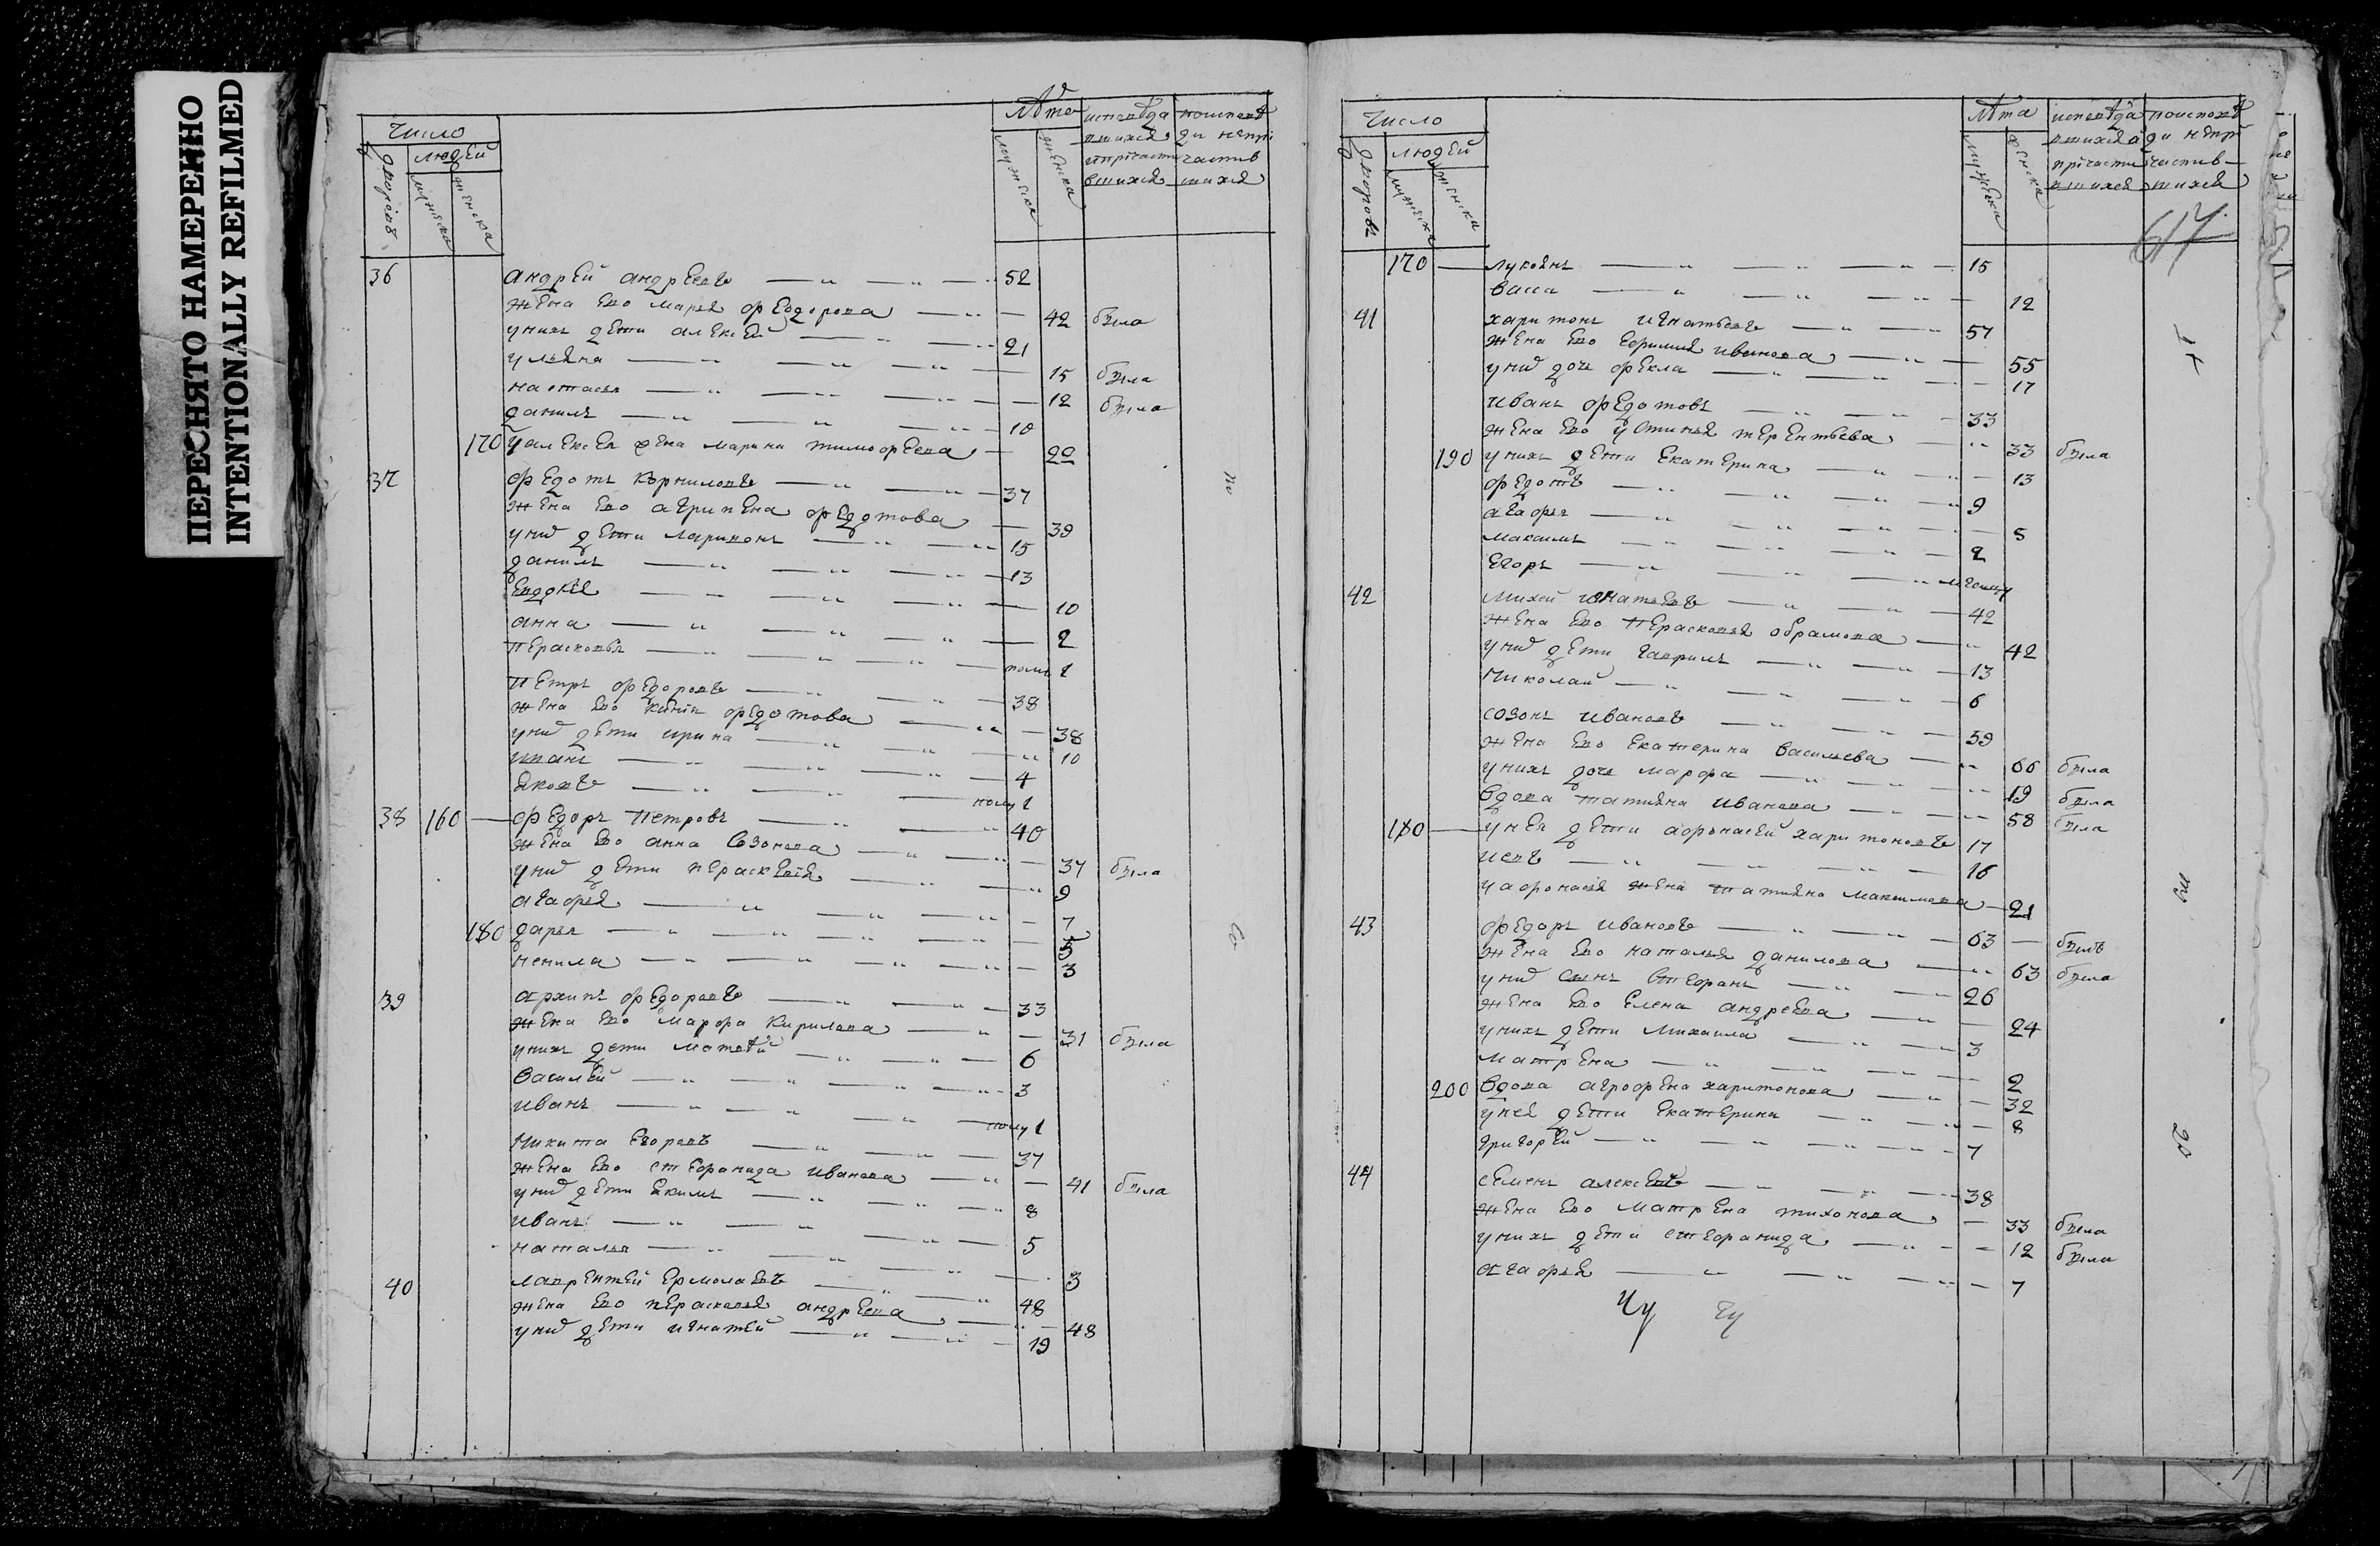 ПЕРЕСНЯТО НАМЕРЕННО
INTENTIONALLY REFILMED
Число лѣта исповѣда поисповѣ
людей вшихся ди непри
дворовъ мужеска женска мужеска женска ипричасти частив
вшихся шихся
36 андрей андреевъ 52
жена ево марья федорова 42 была
унихъ дети алексей 21
ульяна 15 была
настасья 12 была
данилъ 10
170 уалексея жена марина тимофеева 22
37 федотъ корниловъ 37
жена ево агрипена федотова 39
унихъ дети ларионъ 15
данилъ 13
евдокия 10
анна 2
перасковья полу 1
петръ федоровъ 38
жена ево ксения федотова 38
унихъ дети ирина 10
иванъ 4
яковъ полу 1
38 160 федоръ петровъ 40
жена ево анна созонова 37 была
унихъ дети пераскевия 9
агафья 7
180 дарья 5
ненила 3
39 архипъ федоровъ 33
жена ево марфа кирилова 31 была
унихъ дети матвѣй 6
василей 3
иванъ полу 1
никита егоровъ 37
жена ево стефанида иванова 41 была
унихъ дети якимъ 8
иванъ 5
наталья 3
40 лаврентей ермолаевъ 48
жена ево перасковья андреева 48
унихъ дети игнатей 19
по
со
Число лѣта исповѣда поисповѣ
людей вшихся ди непри
дворовъ мужеска женска мужеска женска причасти частив
вшихся шихся
617
170 лукоянъ 15
васса 12
41 харитонъ игнатьевъ 57
жена ево ефимия иванова 55
унихъ дочь фекла 17
иванъ федотовъ 33
жена ево устинья терентьева 33 была
190 унихъ дети екатерина 13
федотъ 9
агафья 5
максимъ 2
егоръ
42 михей игнатьевъ 42
жена ево перасковья абрамова 42
унихъ дети гаврилъ 13
николай 6
созонъ ивановъ 59
жена ево екатерина васильева 66 была
унихъ дочь марфа 19 была
вдова татияна иванова 58 была
180 унея дети афонасей харитоновъ 17
иевъ 16
уафонасья жена татияна максимова 21
43 федоръ ивановъ 63 былъ
жена ево наталья данилова 63 была
унихъ сынъ стефанъ 26
жена ево елена андреева 24
унихъ дети михаила 3
матрена 2
200 вдова агрофена харитонова 32
унея дети екатерина 8
григорей 7
44 семенъ алексеевъ 38
жена ево матрена тихонова 33 была
унихъ дети стефанида 12 была
агафья 7